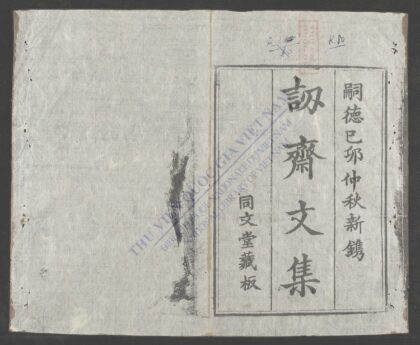 嗣德己卯仲秋新鐫
訒齋文集
同文堂藏板
THƯ VIỆN QUỐC GIA VIỆT NAM
NATIONAL LIBRARY OF VIETNAM